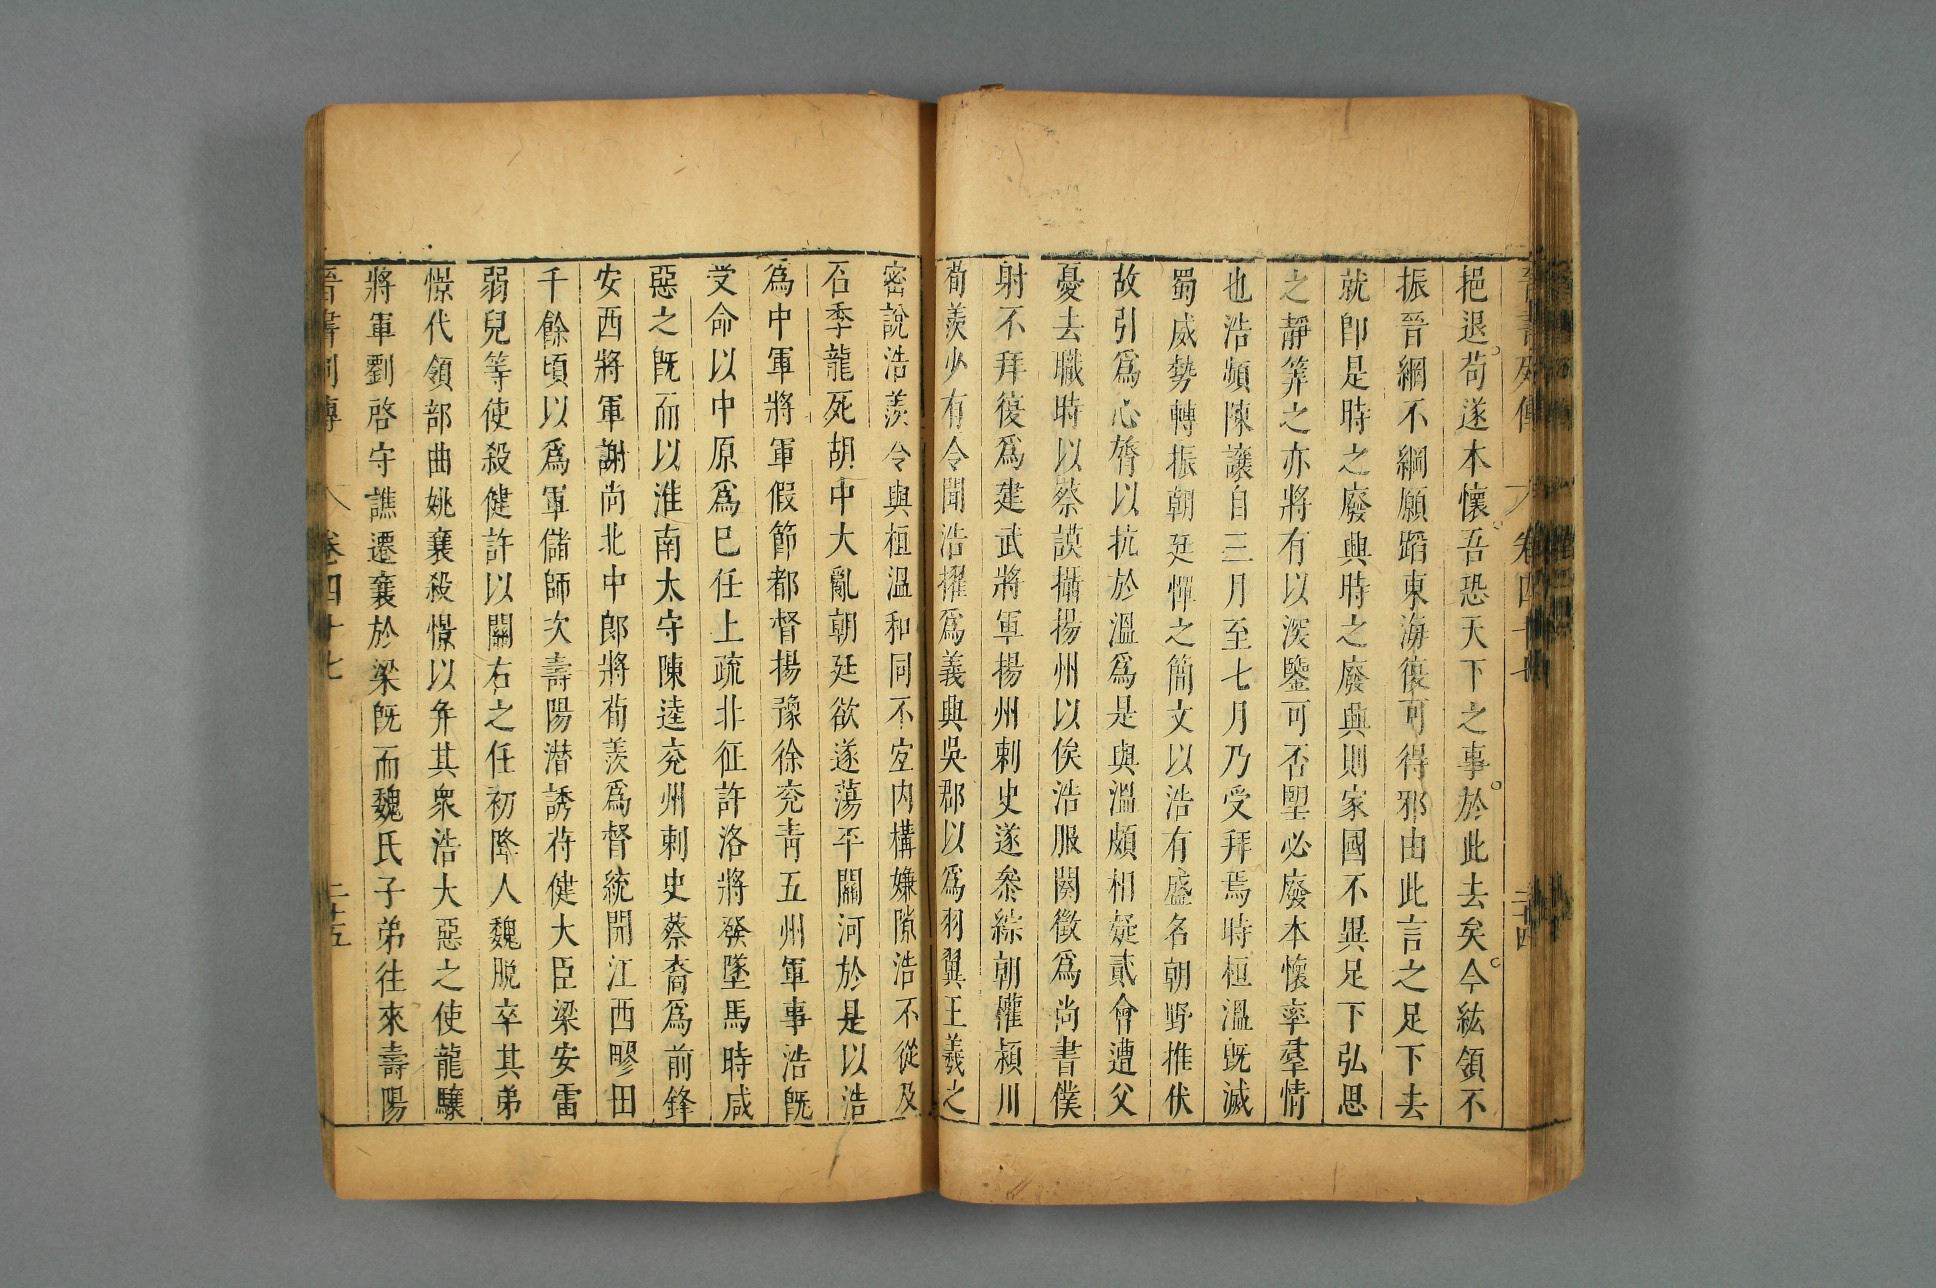 晉書列傳 卷四十七 二十四
挹退苟遂本懷吾恐天下之事於此去矣今紘領不
振晉綱不綱願蹈東海復可得邪由此言之足下去
就卽是時之廢興時之廢興則家國不異足下弘思
之靜筭之亦將有以深鑒可否望必廢本懷率羣情
也浩頻陳讓自三月至七月乃受拜焉時桓溫旣滅
蜀威勢轉振朝廷憚之簡文以浩有盛名朝野推伏
故引爲心膂以抗於溫爲是與溫頗相疑貳會遭父
憂去職時以蔡謨攝揚州以俟浩服闋徵爲尚書僕
射不拜復爲建武將軍揚州刺史遂叅綜朝權潁川
荀羨少有令聞浩擢爲義興吳郡以爲羽翼王羲之
密說浩羨令與桓溫和同不宜內構嫌隙浩不從及
石季龍死胡中大亂朝廷欲遂蕩平關河於是以浩
爲中軍將軍假節都督揚豫徐兗靑五州軍事浩旣
受命以中原爲巳任上疏北征許洛將發墜馬時咸
惡之旣而以淮南太守陳逵兗州刺史蔡裔爲前鋒
安西將軍謝尚北中郎將荀羨爲督統開江西疁田
千餘頃以爲軍儲師次壽陽潛誘苻健大臣梁安雷
弱兒等使殺健許以關右之任初降人魏脫卒其弟
憬代領部曲姚襄殺憬以幷其衆浩大惡之使龍驤
將軍劉啓守譙遷襄於梁旣而魏氏子弟往來壽陽
晉書列傳 卷四十七 二十五